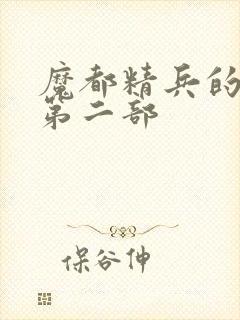 魔都精兵的
第二部
保谷伸